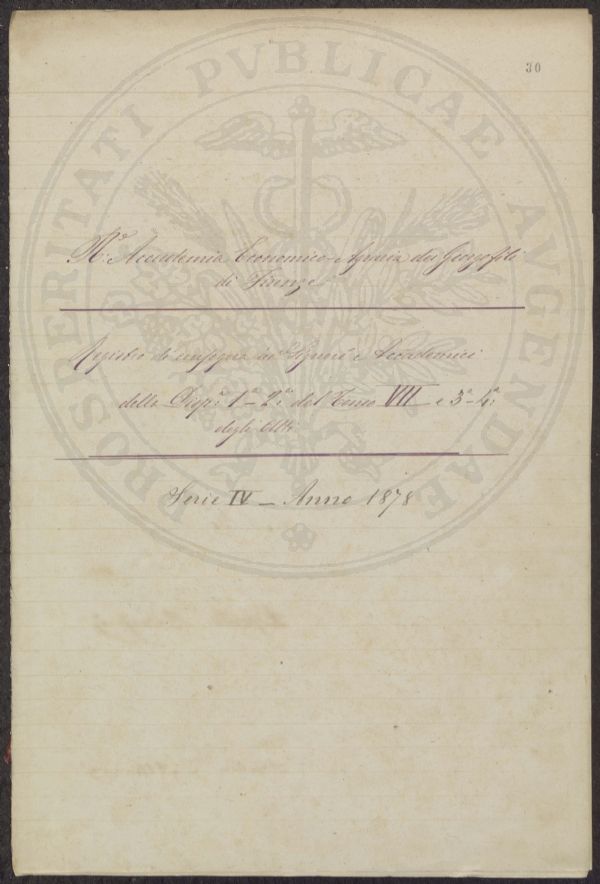 30
PROSPERITATI PVBLICAE AVGENDAE
R.a Accademia Economico-Agraria dei Georgofili
di Firenze
Registro di consegna ai Signori Accademici
delle Disp.e 1.a 2.a del Tomo VII e 3.a 4.a
degli Atti
Serie IV – Anno 1878